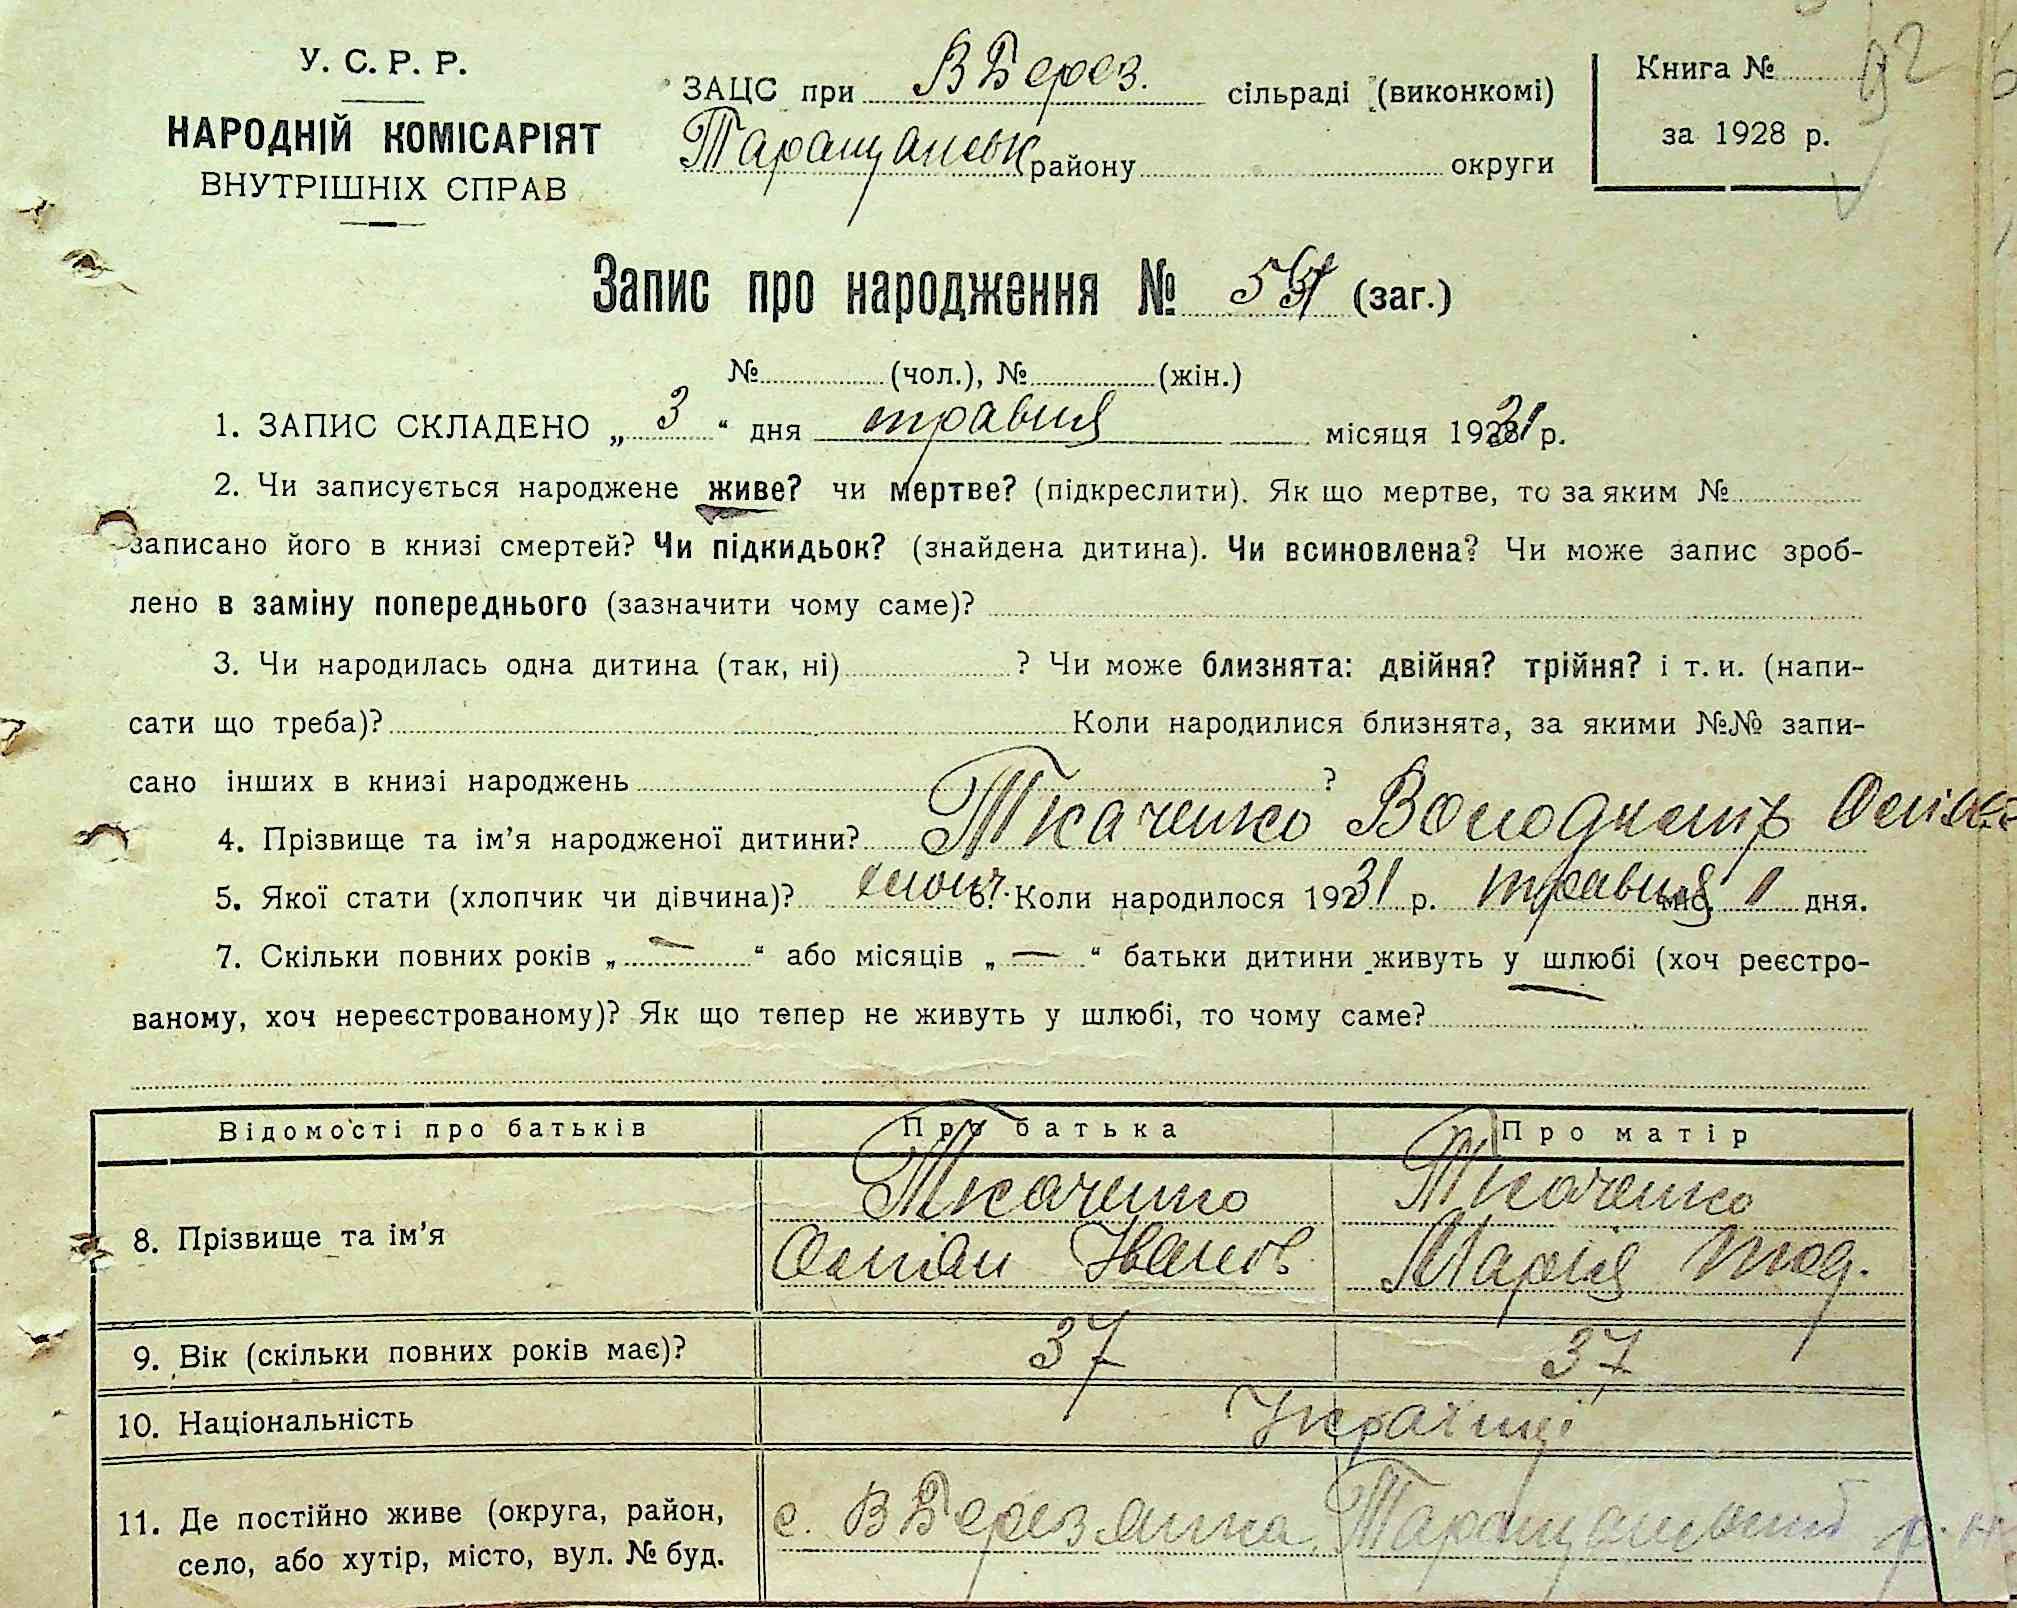 У. С. Р. Р.
НАРОДНІЙ КОМІСАРІЯТ
ВНУТРІШНІХ СПРАВ
ЗАЦС при В Берез. сільраді (виконкомі)
Таращанськ району округи
Книга № 92
за 1928 р.
Запис про народження № (заг.)
№ (чол.), № (жін.)
1. ЗАПИС СКЛАДЕНО „ 3 “ дня травня місяця 1931 р.
2. Чи записується народжене живе? чи мертве? (підкреслити). Як що мертве, то за яким №
записано його в книзі смертей? Чи підкидьок? (знайдена дитина). Чи всиновлена? Чи може запис зроб-
лено в заміну попереднього (зазначити чому саме)?
3. Чи народилась одна дитина (так, ні) ? Чи може близнята: двійня? трійня? і т. и. (напи-
сати що треба)? Коли народилися близнята, за якими №№ запи-
сано інших в книзі народжень ?
4. Прізвище та ім’я народженої дитини? Ткаченко Володимір
5. Якої стати (хлопчик чи дівчина)? 6. Коли народилося 1931 р. травня міс. 1 дня.
7. Скільки повних років „ — “ або місяців „ — “ батьки дитини живуть у шлюбі (хоч реєстро-
ваному, хоч нереєстрованому)? Як що тепер не живуть у шлюбі, то чому саме?
Відомості про батьків Про батька Про матір
8. Прізвище та ім’я Ткаченко Ткаченко
Іванов. Марія Тод.
9. Вік (скільки повних років має)? 37 37
10. Національність Українці
11. Де постійно живе (округа, район, с. В Березянка Таращанський р-н
село, або хутір, місто, вул. № буд.